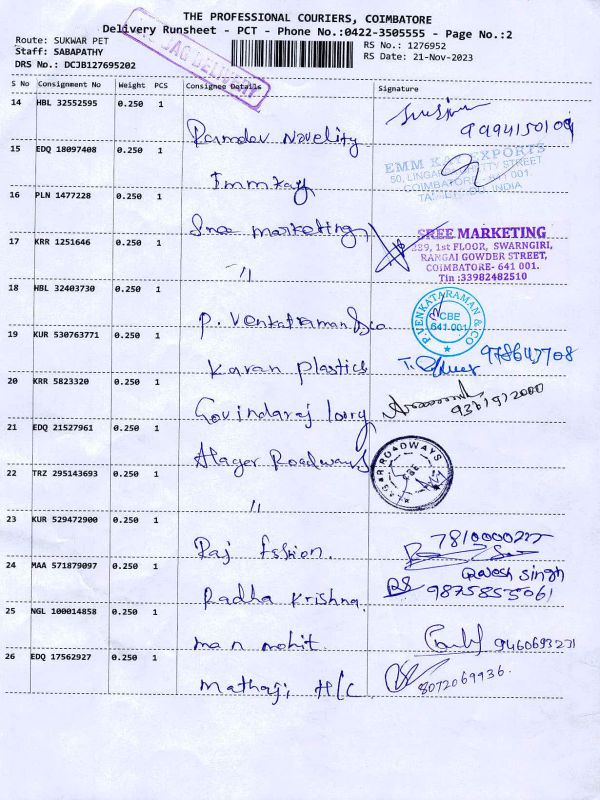 THE PROFESSIONAL COURIERS, COIMBATORE
Delivery Runsheet - PCT - Phone No.:0422-3505555 - Page No.:2
Route: SUKWAR PET
Staff: SABAPATHY
DRS No.: DCJB127695202
RS No.: 1276952
RS Date: 21-Nov-2023
DELIVERY
S No Consignment No Weight PCS Consignee Details Signature
14 HBL 32552595 0.250 1
Ramdev Novelity
15 EDQ 18097408 0.250 1
Immkay
EXPORTS
COIMBATORE
INDIA
16 PLN 1477228 0.250 1
Sree marketing
SREE MARKETING
289, 1st FLOOR, SWARNGIRI,
RANGAI GOWDER STREET,
COIMBATORE- 641 001.
Tin :33982482510
17 KRR 1251646 0.250 1
"
18 HBL 32403730 0.250 1
P. Venkataraman & co
P.VENKATARAMAN & CO
CBE
641.001
19 KUR 530763771 0.250 1
Karan Plastics
20 KRR 5823320 0.250 1
Govindaraj lorry
21 EDQ 21527961 0.250 1
Alager Roadways
ROADWAYS
CBE
22 TRZ 295143693 0.250 1
"
23 KUR 529472900 0.250 1
Raj fshion.
7810000225
24 MAA 571879097 0.250 1
Radha Krishna.
Singh
9875855061
25 NGL 100014858 0.250 1
ma n mohit.
9460693271
26 EDQ 17562927 0.250 1
Mathaji H/C
8072069936.